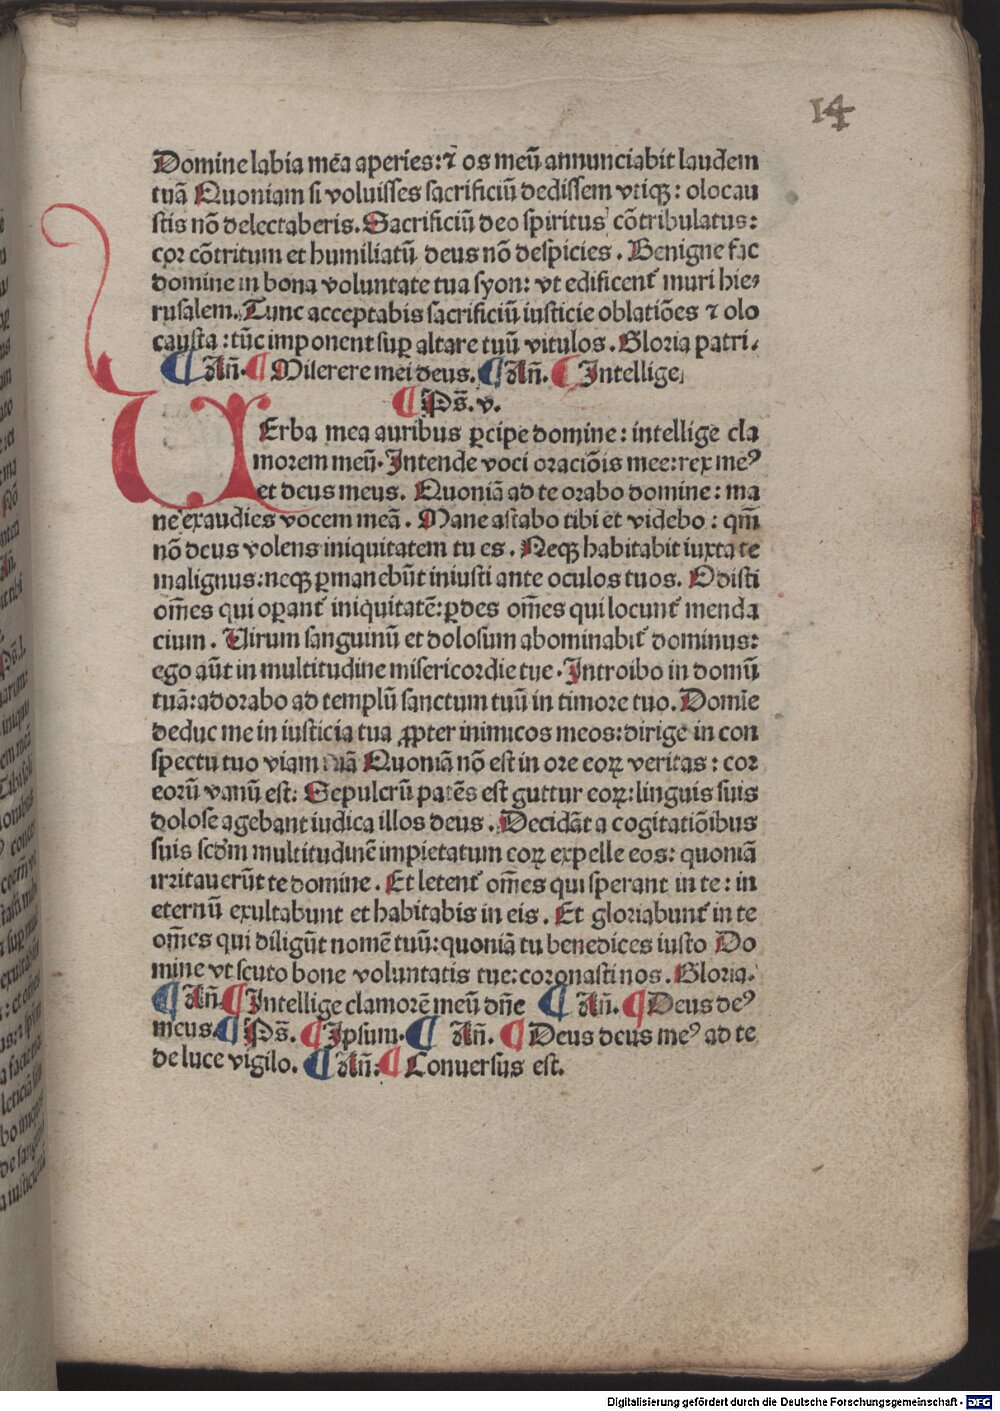 14
Domine labia mea aperies: ⁊ os meū annunciabit laudem
tuā Quoniam si voluisses sacrificiū dedissem vtiqꝫ: olocau
stis nō delectaberis. Sacrificiū deo spiritus cōtribulatus:
cor cōtritum et humiliatū deus nō despicies. Benigne fac
domine in bona voluntate tua syon: vt edificent᷑ muri hie
rusalem. Tunc acceptabis sacrificiū iusticie oblatiōes ⁊ olo
causta: tūc imponent suꝑ altare tuū vitulos. Gloria patri.
¶ Añ. ¶ Miserere mei deus. ¶ Añ. ¶ Intellige
¶ Ps̄. v.
UErba mea auribus ꝑcipe domine: intellige cla
morem meū. Intende voci oraciōis mee: rex meꝰ
et deus meus. Quoniā ad te orabo domine: ma
ne exaudies vocem meā. Mane astabo tibi et videbo: qm̄
nō deus volens iniquitatem tu es. Neqꝫ habitabit iuxta te
malignus: neqꝫ ꝑmanebūt iniusti ante oculos tuos. Odisti
om̄es qui oꝑant᷑ iniquitatē: ꝑdes om̄es qui locunt᷑ menda
cium. Uirum sanguinū et dolosum abominabit᷑ dominus:
ego aūt in multitudine misericordie tue. Introibo in domū
tuā: adorabo ad templū sanctum tuū in timore tuo. Domīe
deduc me in iusticia tua ꝓpter inimicos meos: dirige in con
spectu tuo viam tuā Quoniā nō est in ore eoꝝ veritas: cor
eorū vanū est. Sepulcrū patēs est guttur eoꝝ: linguis suis
dolose agebant iudica illos deus. Decidāt a cogitatiōibus
suis scd̄m multitudinē impietatum eoꝝ expelle eos: quoniā
irritauerūt te domine. Et letent᷑ om̄es qui sperant in te: in
eternū exultabunt et habitabis in eis. Et gloriabunt᷑ in te
om̄es qui diligūt nomē tuū: quoniā tu benedices iusto Do
mine vt scuto bone voluntatis tue: coronasti nos. Gloria.
¶ Añ. ¶ Intellige clamorē meū dn̄e ¶ Añ. ¶ Deus deꝰ
meus. ¶ Ps̄. ¶ Ipsum. ¶ Añ. ¶ Deus deus meꝰ ad te
de luce vigilo. ¶ Añ: ¶ Conuersus est.
Digitalisierung gefördert durch die Deutsche Forschungsgemeinschaft - DFG